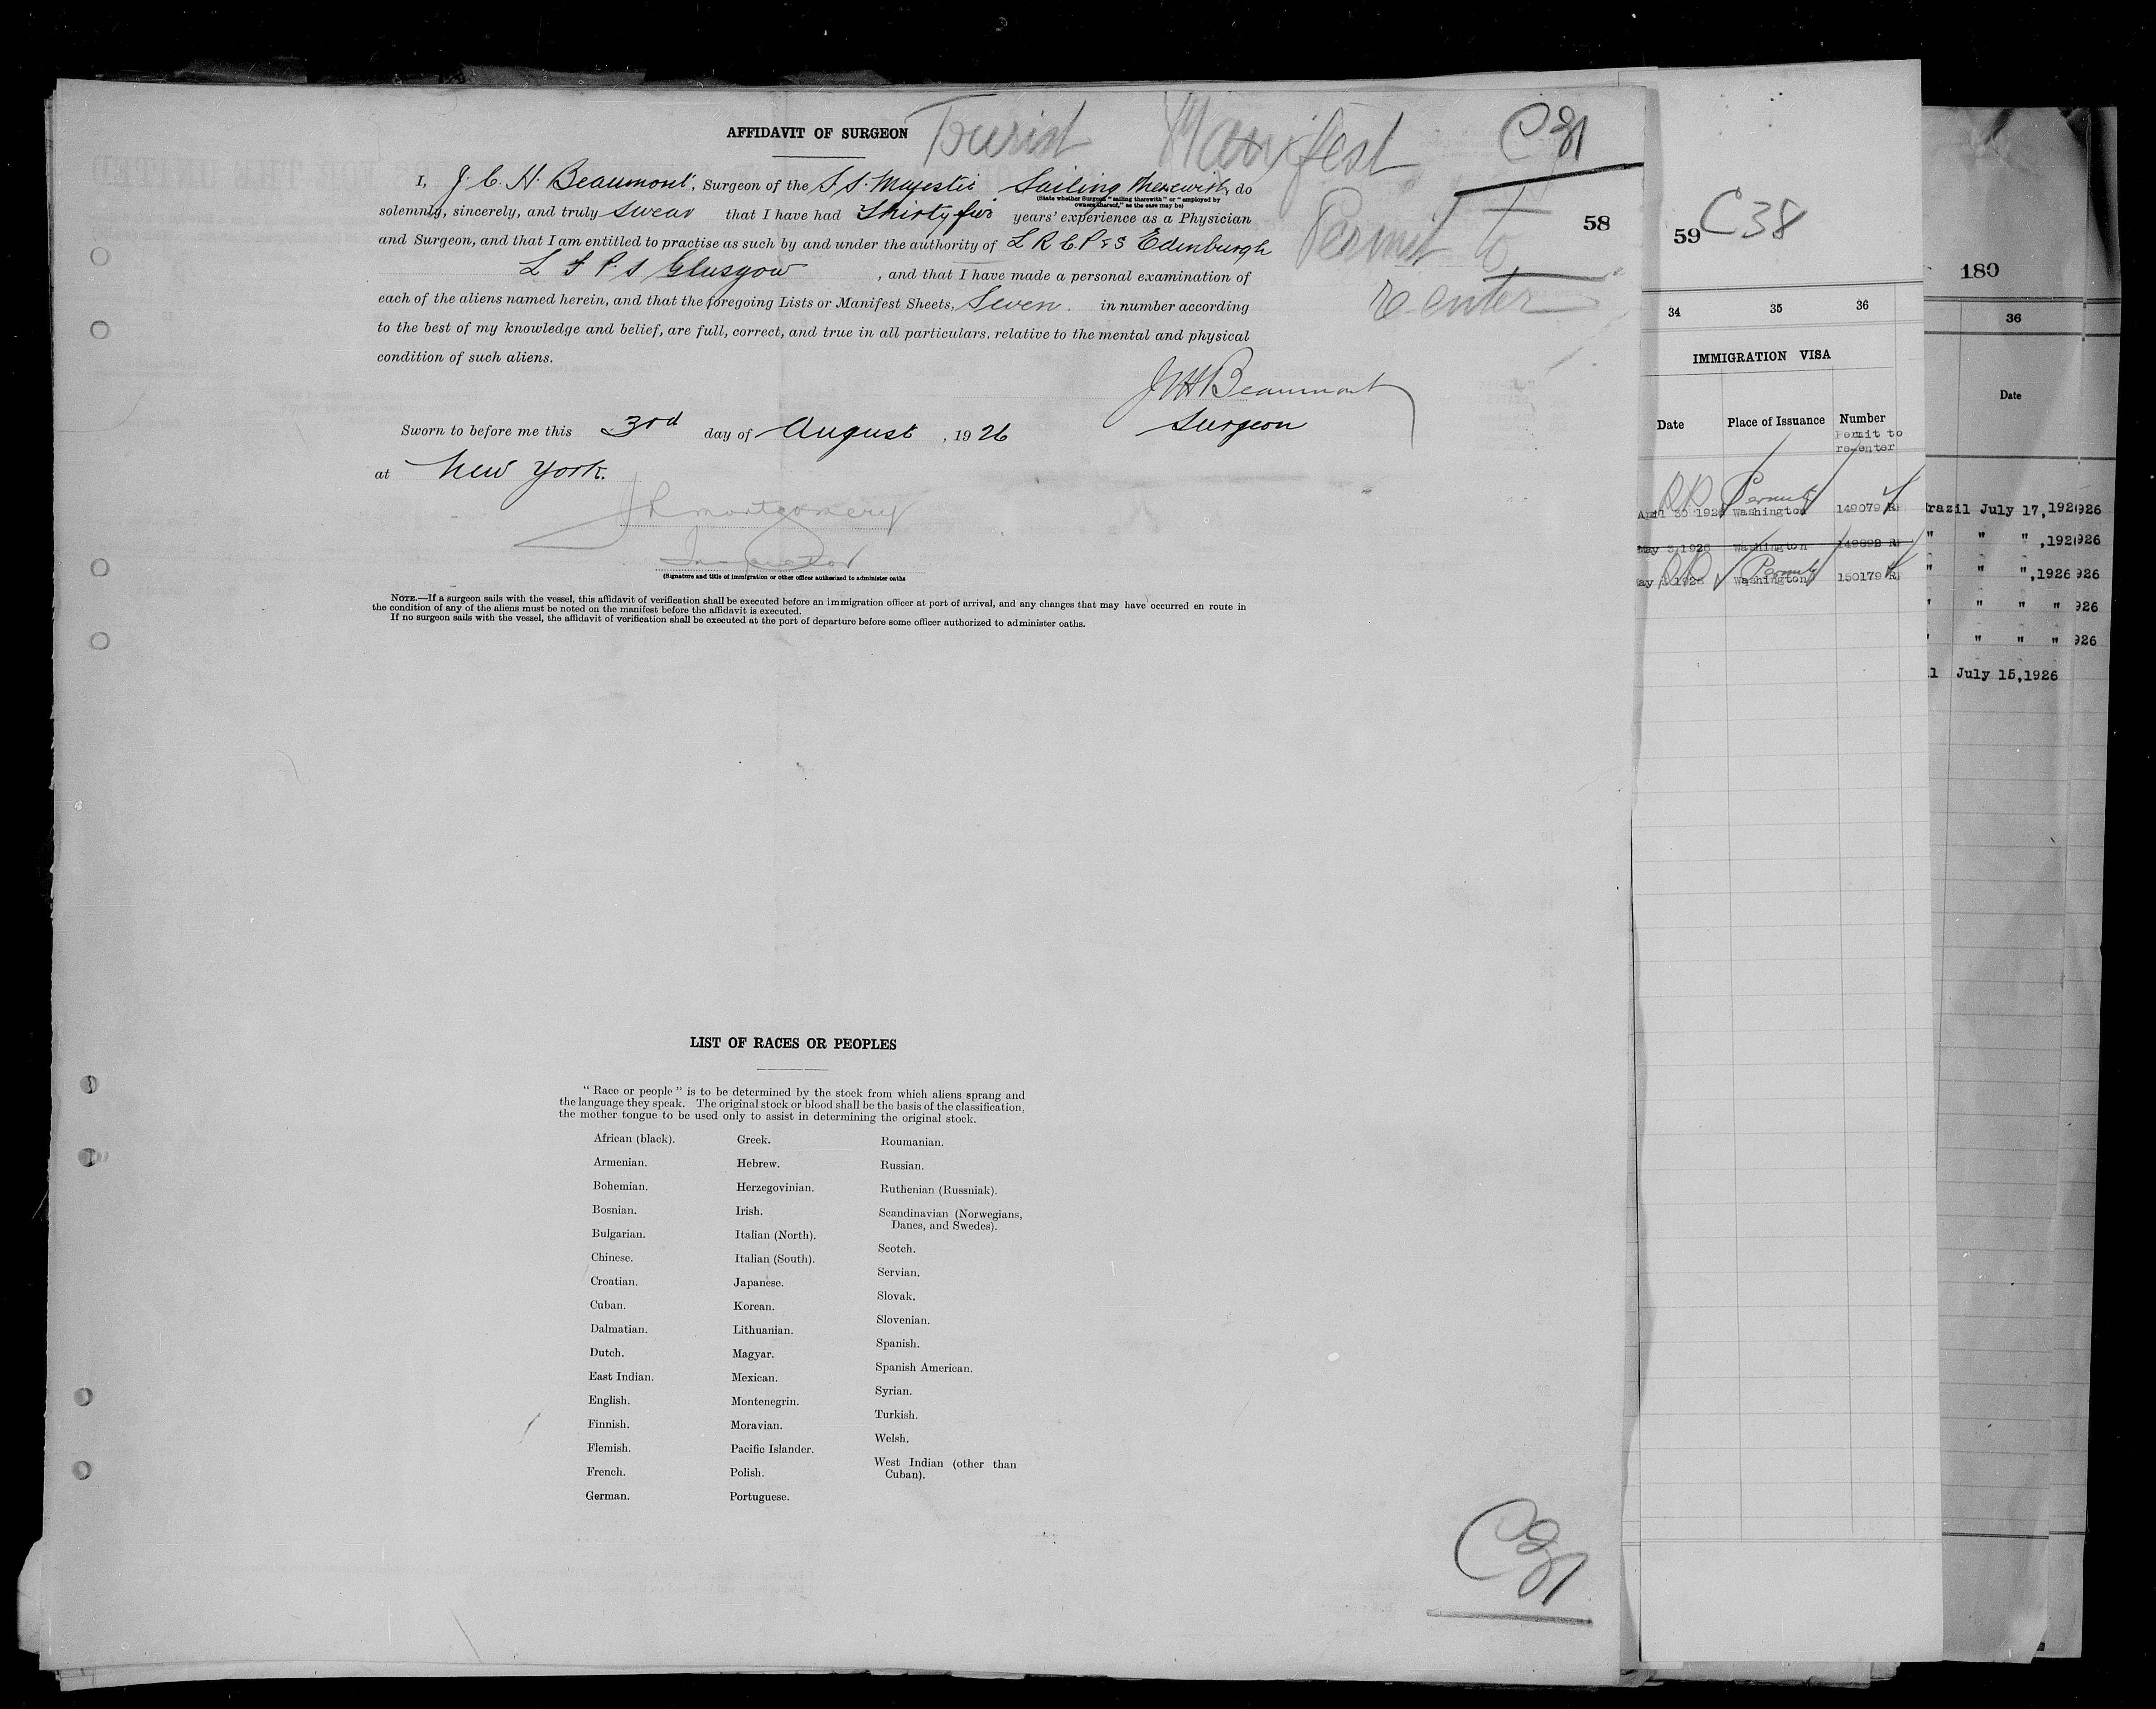 AFFIDAVIT OF SURGEON Tourist Manifest
Permit to
re enter
58
I, J. C. H. Beaumont, Surgeon of the S.S. Majestic Sailing therewith, do
(State whether Surgeon "sailing therewith" or "employed by
owners thereof," as the case may be)
solemnly, sincerely, and truly swear that I have had Thirty five years' experience as a Physician
and Surgeon, and that I am entitled to practise as such by and under the authority of L R C P & S Edinburgh
L F P. S Glasgow, and that I have made a personal examination of
each of the aliens named herein, and that the foregoing Lists or Manifest Sheets, Seven. in number according
to the best of my knowledge and belief, are full, correct, and true in all particulars, relative to the mental and physical
condition of such aliens.
Beaumont
Surgeon
Sworn to before me this 3rd day of August, 1926
at New York.
Montgomery
Inspector
(Signature and title of immigration or other officer authorized to administer oaths
NOTE.—If a surgeon sails with the vessel, this affidavit of verification shall be executed before an immigration officer at port of arrival, and any changes that may have occurred en route in
the condition of any of the aliens must be noted on the manifest before the affidavit is executed.
If no surgeon sails with the vessel, the affidavit of verification shall be executed at the port of departure before some officer authorized to administer oaths.
LIST OF RACES OR PEOPLES
"Race or people" is to be determined by the stock from which aliens sprang and
the language they speak. The original stock or blood shall be the basis of the classification,
the mother tongue to be used only to assist in determining the original stock.
African (black).
Armenian.
Bohemian.
Bosnian.
Bulgarian.
Chinese.
Croatian.
Cuban.
Dalmatian.
Dutch.
East Indian.
English.
Finnish.
Flemish.
French.
German.
Greek.
Hebrew.
Herzegovinian.
Irish.
Italian (North).
Italian (South).
Japanese.
Korean.
Lithuanian.
Magyar.
Mexican.
Montenegrin.
Moravian.
Pacific Islander.
Polish.
Portuguese.
Roumanian.
Russian.
Ruthenian (Russniak).
Scandinavian (Norwegians,
Danes, and Swedes).
Scotch.
Servian.
Slovak.
Slovenian.
Spanish.
Spanish American.
Syrian.
Turkish.
Welsh.
West Indian (other than
Cuban).
59 C38
34 35 36
IMMIGRATION VISA
Date Place of Issuance Number
Permit to
re-enter
Permit
April 30 1926 Washington 149079
May 3, 1926 Washington 149892
Permit
1926 Washington 150179
180
36
Date
July 17, 192 926
" " " ,192 926
" " " ,1926 926
" " " " 926
" " " " 926
July 15,1926